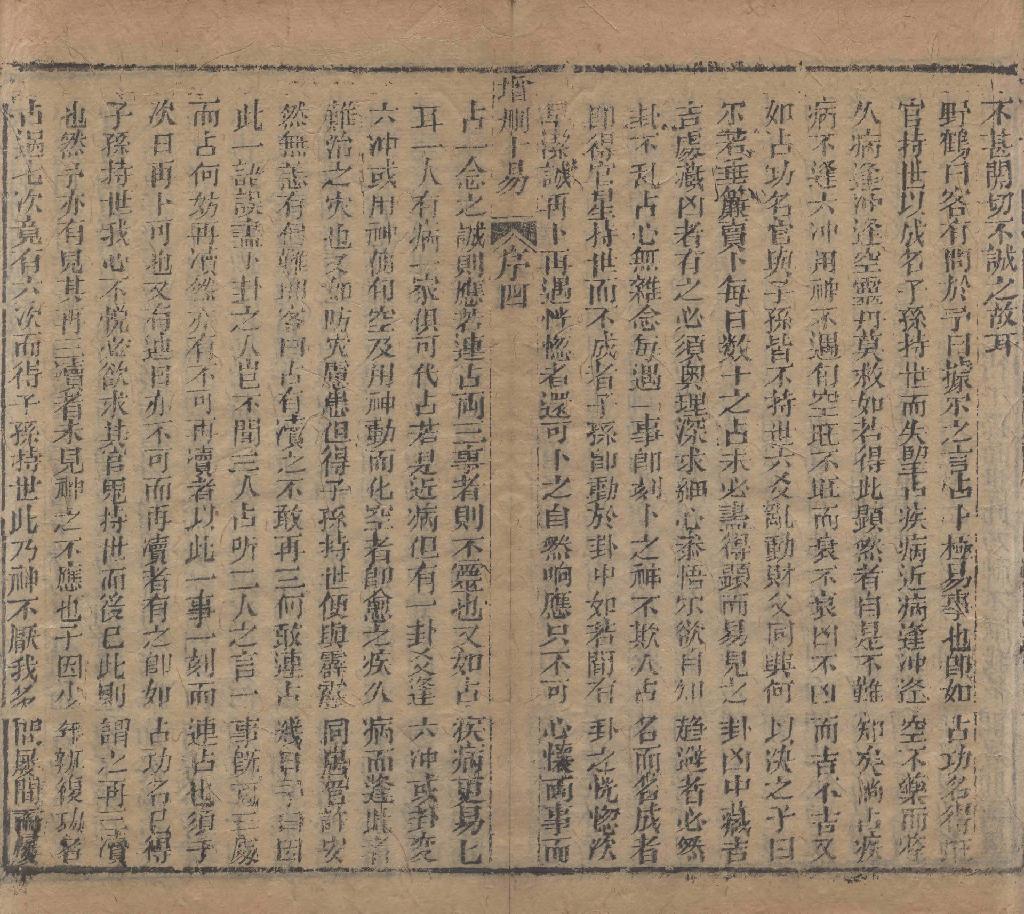 不甚關切不誠之故耳
野鶴曰客有問於予曰據尔之言占卜極易事也即如占功名得旺
官持世以成名子孫持世而失望占疾病近病逢冲逢空不藥而痊
久病逢冲逢空靈丹莫救如若得此顯然者自是不難知矣倘占疾
病不逢六冲用神不遇旬空旺不旺而衰不衰凶不凶而吉不吉又
如占功名官與子孫皆不持世六爻亂動財父同興何以决之予曰
尔若垂簾賣卜每日数十之占未必盡得顯而易見之卦凶中藏吉
吉處藏凶者有之必須奧理深求細心叅悟尔欲自知趋避者必然
卦不乱占心無雜念每遇一事即刻卜之神不欺人占名而名成者
即得官星持世而不成者子孫即動於卦中如若間有卦之恍惚次
早潔誠再卜再遇恍惚者還可卜之自然响應只不可心懷両事而
增刪卜易 序 四
占一念之誠則應若連占両三事者則不靈也又如占疾病更易七
耳一人有病一家俱可代占若是近病但有一卦爻逢六冲或卦变
六冲或用神值旬空及用神動而化空者即愈之疾久病而逢此者
難治之灾也又如防灾慮患但得子孫持世便與霹靂同居管許安
然無恙有
此一語誤盡
而占何妨再瀆然亦有不可再瀆者以此一事一刻而連占也須予
次日再卜可也又有連日亦不可而再瀆者有之即如占功名已得
子孫持世我心不悦必欲求其官鬼持世而後已此則謂之再三瀆
也然予亦有見其再三瀆者未見神之不應也予因少年執復功名
占過七次竟有六次而得子孫持世此乃神不厭我多問屡問而屡